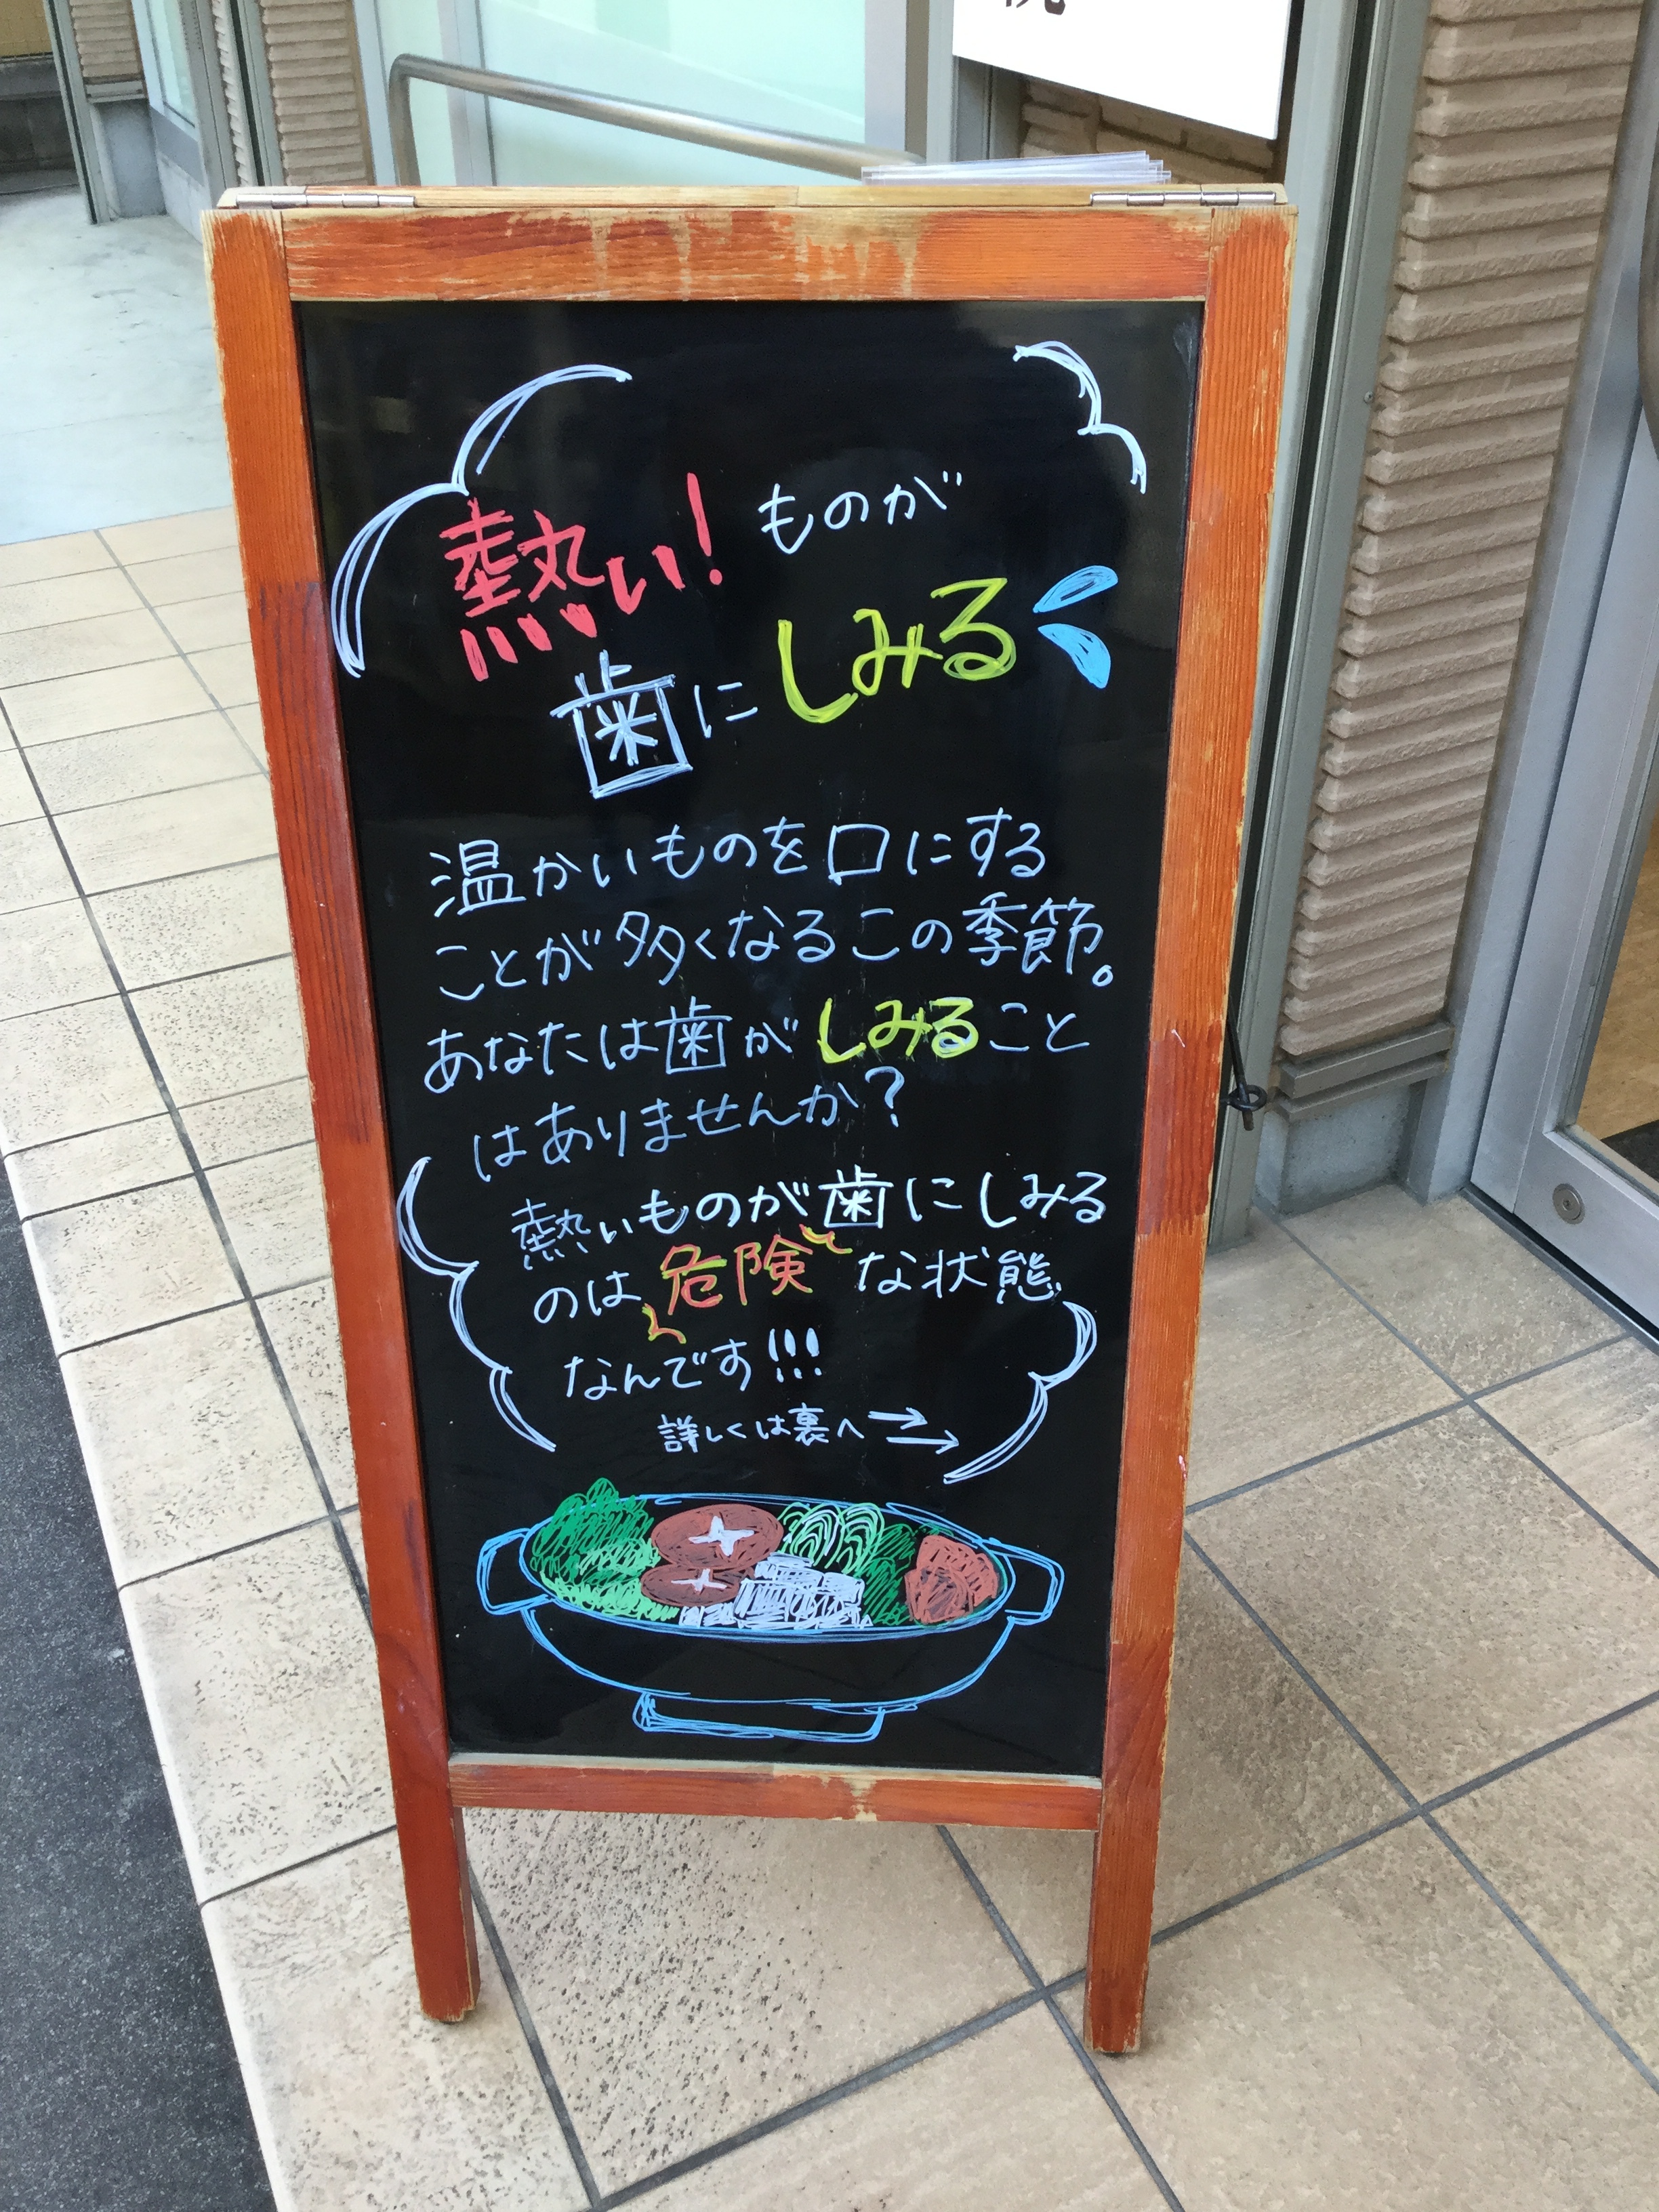 熱い!ものが
歯にしみる
温かいものを口にする
ことが多くなるこの季節。
あなたは歯がしみること
はありませんか?
熱いものが歯にしみる
のは危険な状態
なんです!!!
詳しくは裏へ→→